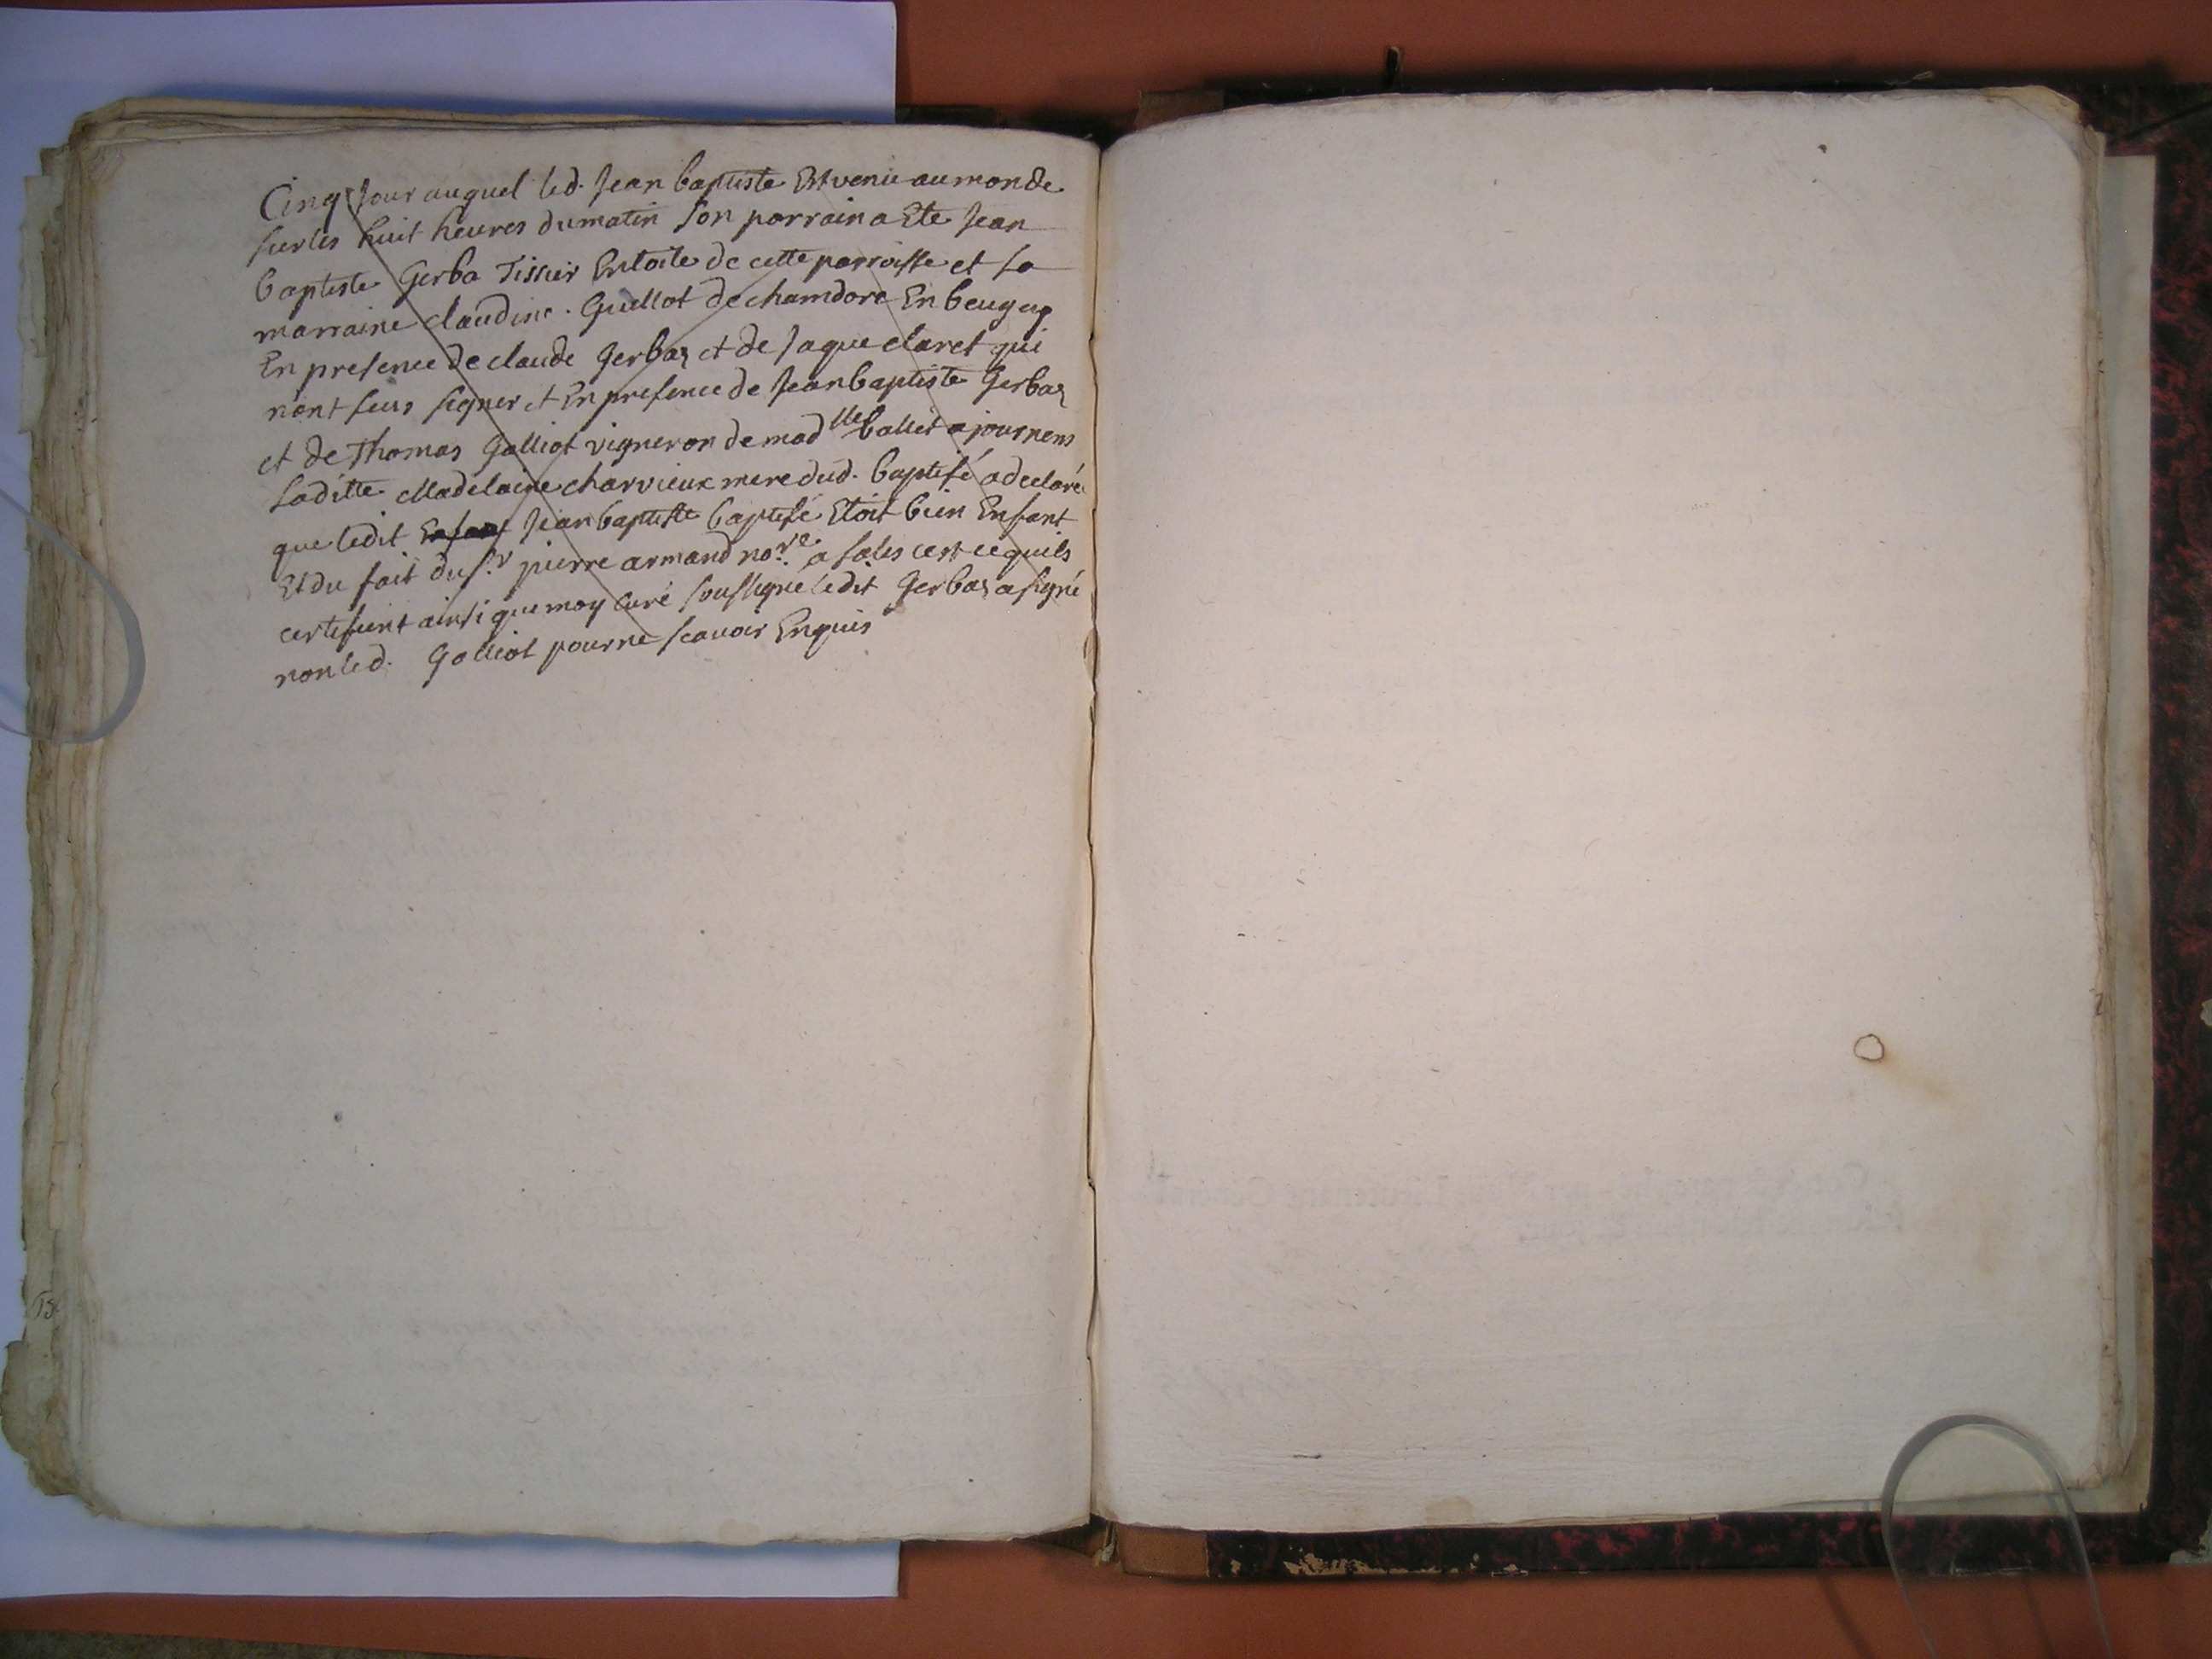 Cinq Jour auquel led. Jean baptiste Est venu au monde
sur les huit heures du matin son parrain a Ete Jean
baptiste Gerba Tissier En toile de cette parroisse et sa
marraine claudine. Guillot de chamdore En beugey
En presence de claude Gerbaz et de Jaque claret qui
nont sceus signer et En presence de Jean baptiste Gerbaz
et de Thomas Galliot vigneron de mad lle ballet a journens
Laditte Madelaine charvieux mere dud. baptisé a declaré
que ledit Enfant Jean baptiste baptisé Etoit bien Enfant
Et du fait du s.r pierre armand no.re a sales cest ce quils
certifient ainsi que moy curé soussigné ledit Gerbaz a signé
non led. Galliot pour ne scavoir Enquis